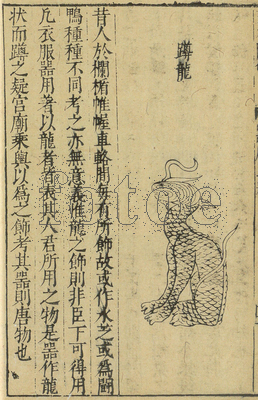 蹲龍
昔人於欄楯帷幄車輅間每有所飾故或作水之或為闘
鴨種種不同考之亦無意義惟龍之飾則非臣下可得用
凡衣服器用著以龍者者表其人君所用之物是器作龍
状而蹲之疑宫廟乘輿以為之飾考其器則唐物也